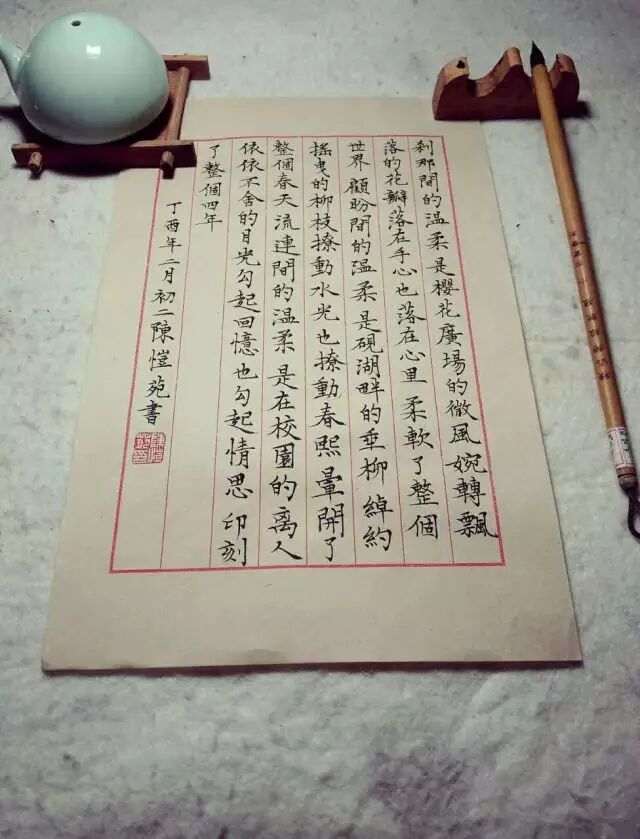 刹那間的温柔是櫻花廣場的微風婉轉飄
落的花瓣落在手心也落在心里柔軟了整個
世界顧盼間的温柔是硯湖畔的垂柳綽約
摇曳的柳枝撩動水光也撩動春熙暈開了
整個春天流連間的温柔是在校園的离人
依依不舍的目光勾起回憶也勾起情思印刻
了整個四年
丁酉年二月初二陳愷苑書